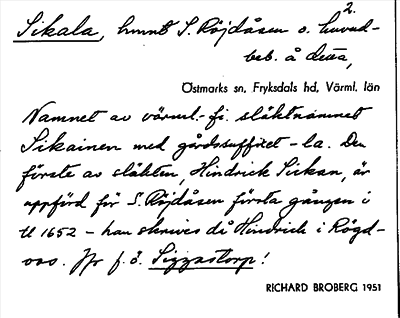 2.
Sikala, hmnt S. Röjdåsen o. huvud-
beb. å detta,
Östmarks sn, Fryksdals hd, Värml. län
Namnet av värml.-fi. släktnamnet
Sikainen med gårdssuffixet -la. Den
förste av släkten, Hindrick Sickan, är
uppförd för S. Röjdåsen första gången i
U 1652 - han skrives då Hindrich i Rögd-
oos. Jfr f.ö. Sizzastorp!
RICHARD BROBERG 1951